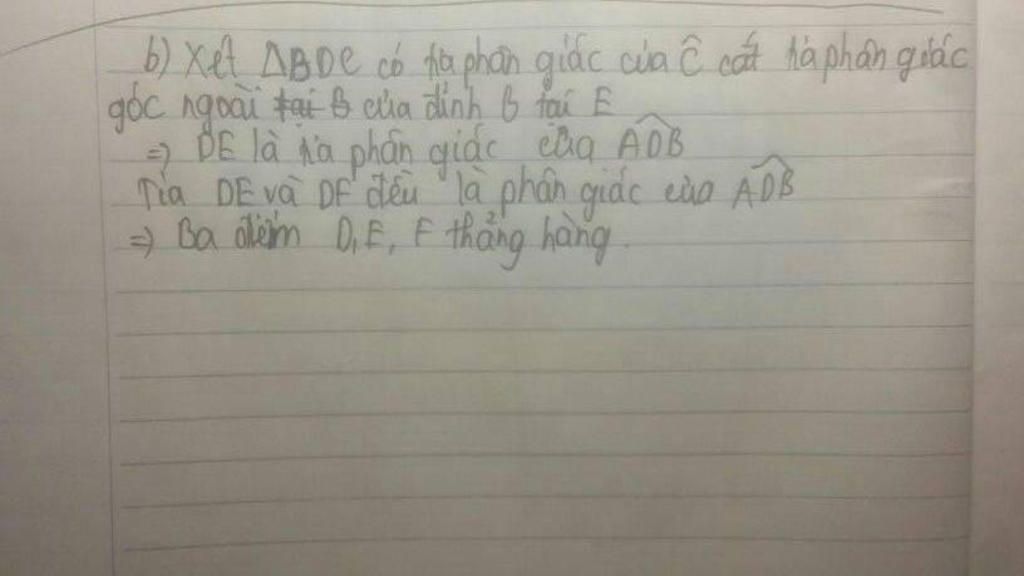 b) Xét ΔBDC có tia phân giác của Ĉ cắt tia phân giác
góc ngoài tại B của đỉnh B tại E
=> DE là tia phân giác của ADB
Tia DE và DF đều là phân giác của ADB
=> Ba điểm D, E, F thẳng hàng.